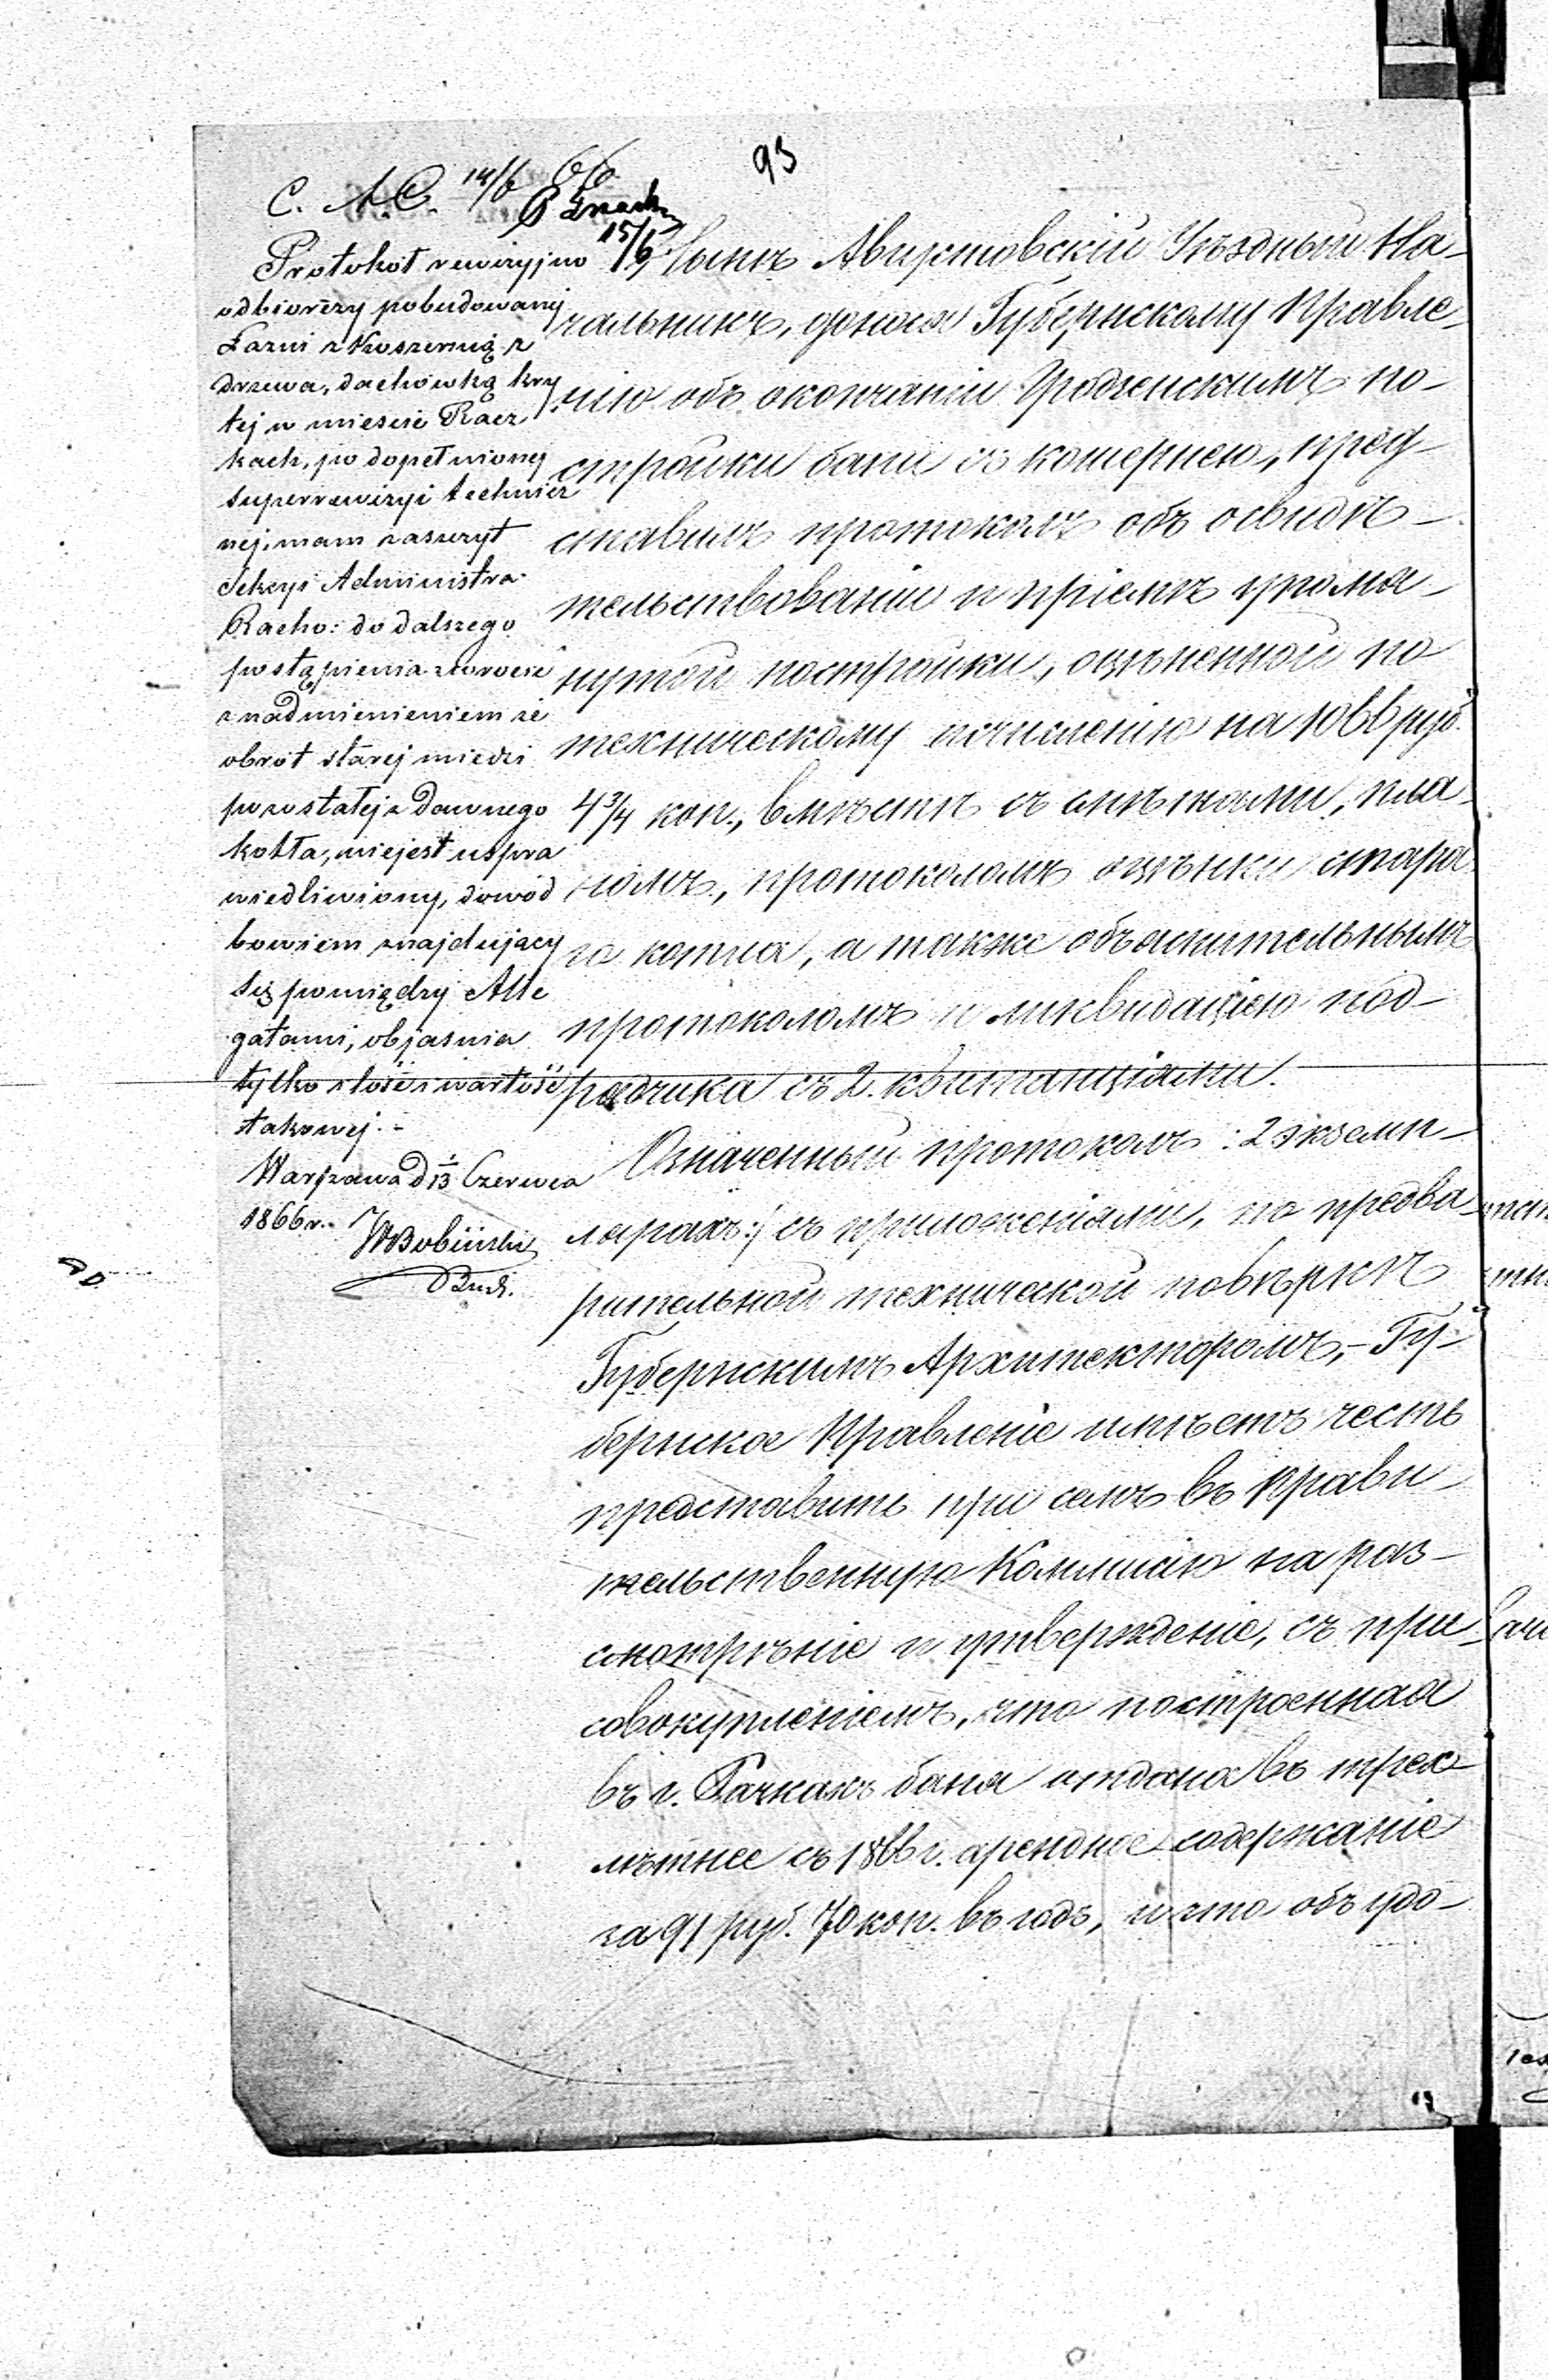 93
C. A.C. 14/6 66
15/6
Protokół rewizyjno
odbiorczy pobudowanej
Łazni z Koszernią z
drzewa, dachówką kry
tej w mieście Racz
kach, po dopełnionej
superrewizyi technicz
nej, mam zaszczyt
Sekcyi Administra.
Racho: do dalszego
postąpienia zwrócić
z nadmienieniem że
obrot starej miedzi
pozostałej z dawnego
kotła, niejest uspra
wiedliwiony, dowód
bowiem znajdujący
się pomiędzy Alle
gatami, objasnia
tylko ilość i wartość
takowej.-
Warszawa d 1/13 Czerwca
1866 r.-
Bud.
Нынѣ Августовскій Уѣздный На-
чальникъ, донося Губернскому Правле-
нію объ окончаніи Гродзенскимъ по-
стройки бани съ кошернею, пред-
ставилъ протоколъ объ освидѣ-
тельствованіи и пріемкѣ упомя-
нутой постройки, оцѣненной по
техническому исчисленію на 1066 руб.
4 3/4 коп., вмѣстѣ съ смѣтами, пла-
номъ, протоколомъ оцѣнки стара-
го котла, а также объяснительнымъ
протоколомъ и ликвидаціею под-
рядчика съ 2. квитанціями.
Означенный протоколъ : 2 экземп-
лярахъ :/ съ приложеніями, по предва-
рительной технической повѣркѣ
Губернскимъ Архитекторомъ,- Гу-
бернское Правленіе имѣетъ честь
представить при семъ въ Прави-
тельственную Коммисію на раз-
смотрѣніе и утвержденіе, съ при-
совокупленіемъ, что построенная
въ г. Рачкахъ баня отдана въ трех-
лѣтнее съ 1866 г. арендное содержаніе
за 91 руб. 70 коп. въ годъ, и что объ удо-